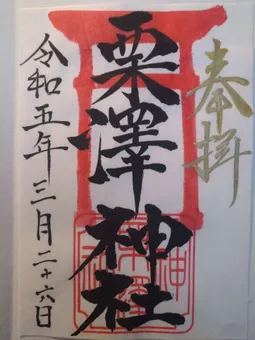 奉拝
栗澤神社
令和五年三月二十六日